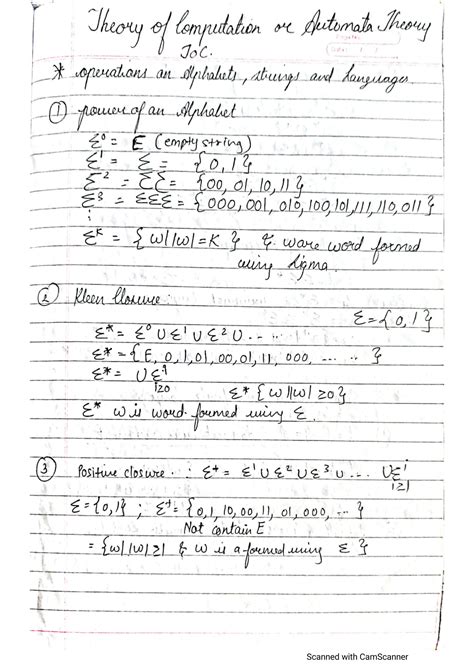 Theory of Computation or Automata Theory
ToC.
* operations on Alphabets, strings and Languages.
① power of an Alphabet
Σ⁰ = E (empty string)
Σ¹ = Σ = {0,1}
Σ² = ΣΣ = {00, 01, 10, 11}
Σ³ = ΣΣΣ = {000, 001, 010, 100, 101, 111, 110, 011}
⋮
Σᴷ = {w| |w| = K } & w are word formed
using sigma.
② Kleen Closure:
Σ = {0,1}
Σ* = Σ⁰ ∪ Σ¹ ∪ Σ² ∪ .. - ..
Σ* = {E, 0, 1, 01, 00, 01, 11, 000, ---- .. }
Σ* = ∪Σⁱ
i≥0 Σ* {w| |w| ≥0}
Σ* w is word formed using Σ.
③ Positive closure : : Σ⁺ = Σ¹ ∪ Σ² ∪ Σ³ ∪ --- ∪Σⁱ
i≥1
Σ = {0,1} ; Σ⁺ = {0, 1, 10, 00, 11, 01, 000, --- }
Not contain E
= {w| |w| ≥1 & w is a formed using Σ }
Scanned with CamScanner